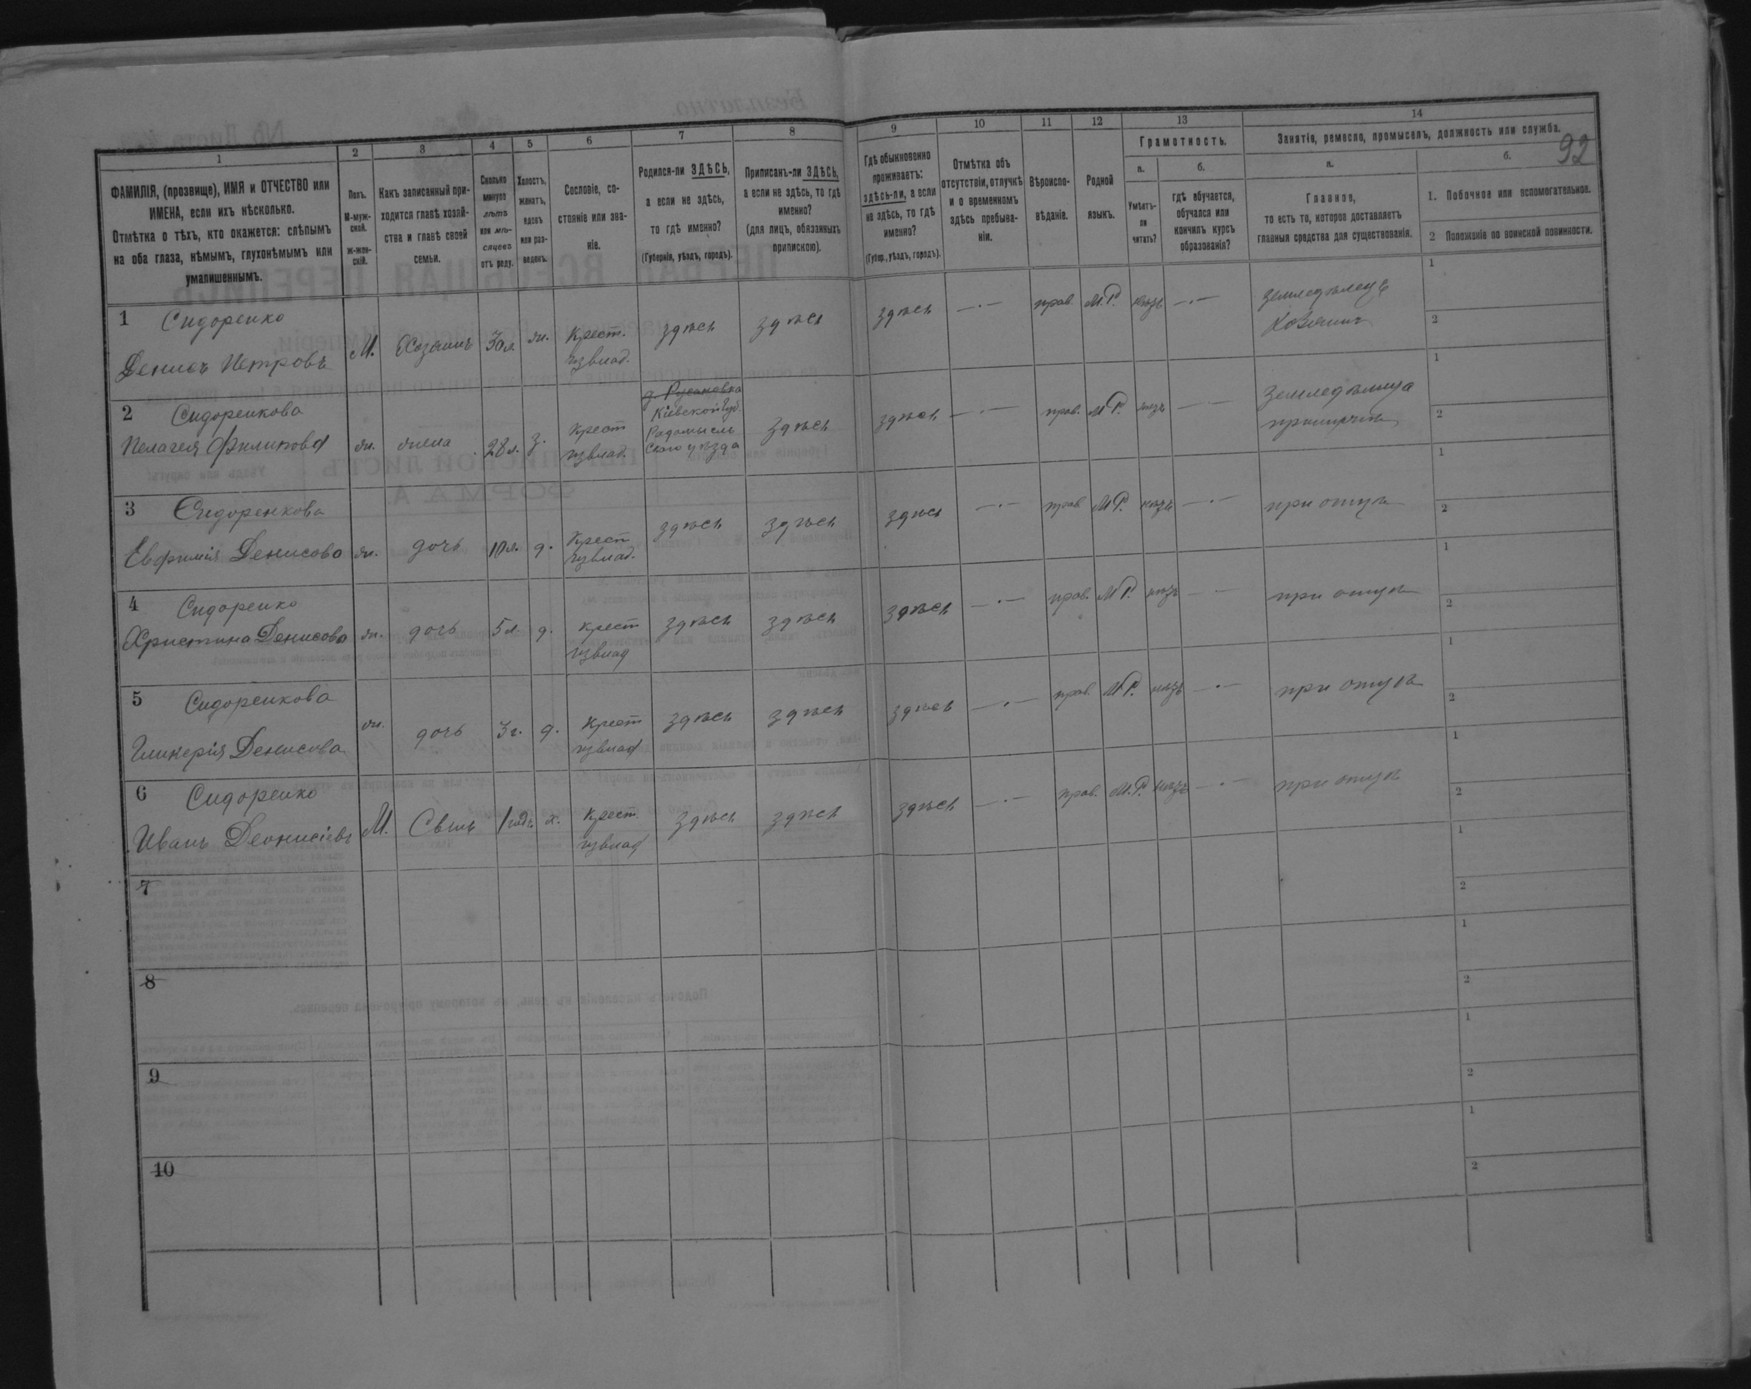 92
1 2 3 4 5 6 7 8 9 10 11 12 13 14
ФАМИЛІЯ, (прозвище), ИМЯ и ОТЧЕСТВО или
ИМЕНА, если ихъ нѣсколько.
Отмѣтка о тѣхъ, кто окажется: слѣпымъ
на оба глаза, нѣмымъ, глухонѣмымъ или
умалишеннымъ.
Полъ.
М-муж-
ской.
ж-жен-
скій.
Какъ записанный при-
ходится главѣ хозяй-
ства и главѣ своей
семьи.
Сколько
минуло
лѣтъ
или мѣ-
сяцевъ
отъ роду.
Холостъ,
женатъ,
вдовъ
или раз-
веденъ.
Сословіе, со-
стояніе или зва-
ніе.
Родился-ли ЗДѢСЬ,
а если не здѣсь,
то гдѣ именно?
(Губернія, уѣздъ, городъ).
Приписанъ-ли ЗДѢСЬ,
а если не здѣсь, то гдѣ
именно?
(для лицъ, обязанныхъ
припискою).
Гдѣ обыкновенно
проживаетъ:
здѣсь-ли, а если
не здѣсь, то гдѣ
именно?
(Губер., уѣздъ, городъ).
Отмѣтка объ
отсутствіи, отлучкѣ
и о временномъ
здѣсь пребыва-
ніи.
Вѣроиспо-
вѣданіе.
Родной
языкъ.
Грамотность.
а.
Умѣетъ-
ли
читать?
б.
гдѣ обучается,
обучался или
кончилъ курсъ
образованія?
Занятія, ремесло, промыселъ, должность или служба.
а.
Главное,
то есть то, которое доставляетъ
главныя средства для существованія.
б.
1. Побочное или вспомогательное.
2 Положеніе по воинской повинности.
1 Сидоренко
Денисъ Петровъ
М. Хозяинъ 30 л. ж. Крест. здѣсь здѣсь здѣсь прав. М.Р.
земледѣлецъ
Хозяинъ
1
2
2 Сидоренкова
Пелагея Филипова
ж. жена 28 л. з. крест
д. Русановка
Кіевской Губ.
Радомысль
скаго уѣзда
здѣсь здѣсь прав. М.Р.
1
2
3 Сидоренкова
Евфимія Денисова
ж. дочь 10 л. д. Крест здѣсь здѣсь здѣсь прав. М.Р. при отцѣ
1
2
4 Сидоренко
Христина Денисова
ж. дочь 5 л д. крест здѣсь здѣсь здѣсь прав. М.Р. при отцѣ
1
2
5 Сидоренкова
Гликерія Денисова
ж. дочь 3 г. д. Крест здѣсь здѣсь здѣсь прав. М.Р. при отцѣ
1
2
6 Сидоренко
Иванъ Деонисіевъ
М. Сынъ 1 х. Крест здѣсь здѣсь здѣсь прав. М.Р. при отцѣ
1
2
7
1
2
8
1
2
9
1
2
10
1
2